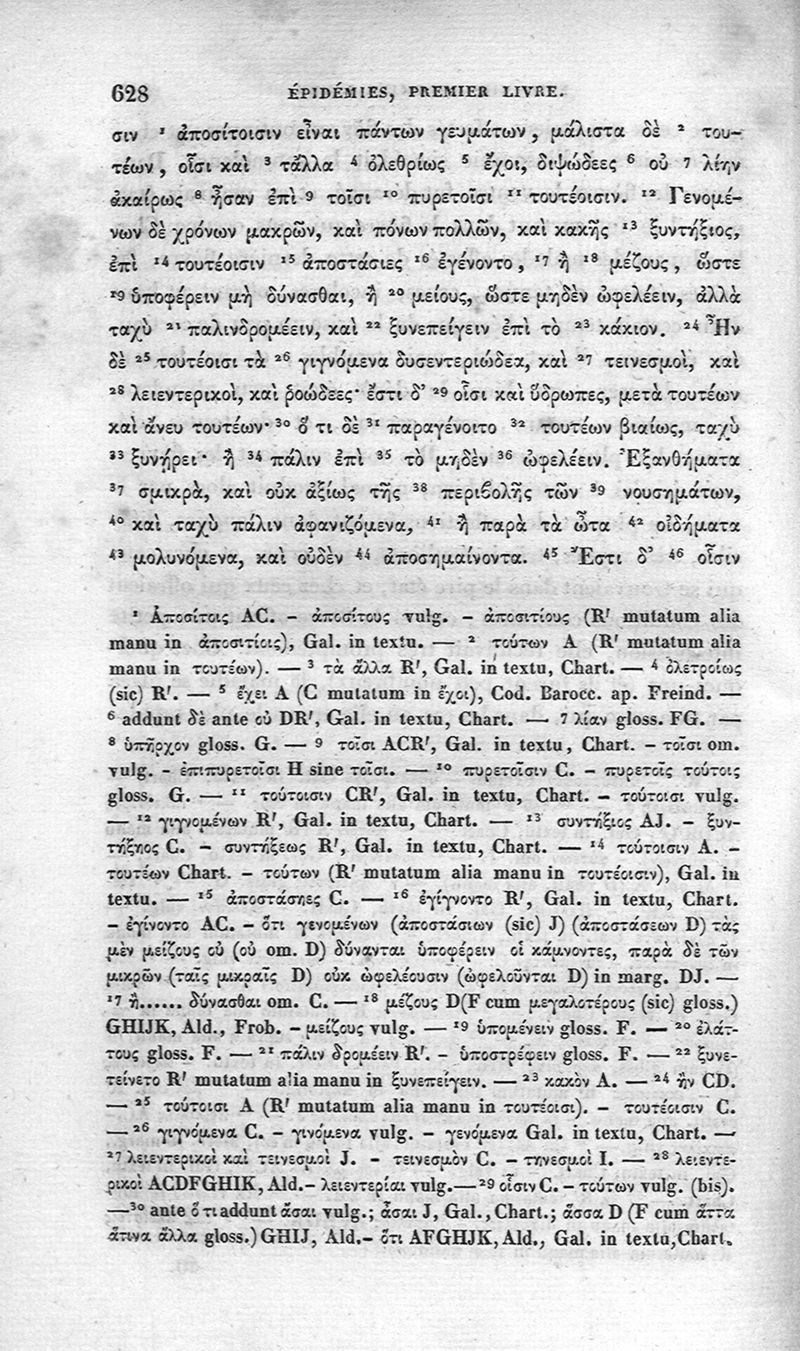 628 ÉPIDÉMIES, PREMIER LIVRE.
σιν ¹ ἀποσίτοισιν εἶναι πάντων γευμάτων, μάλιστα δὲ ² του-
τέων, οἷσι καὶ ³ τἄλλα ⁴ ὀλεθρίως ⁵ ἔχοι, διψώδεες ⁶ οὐ ⁷ λίην
ἀκαίρως ⁸ ἦσαν ἐπὶ ⁹ τοῖσι ¹⁰ πυρετοῖσι ¹¹ τουτέοισιν. ¹² Γενομέ-
νων δὲ χρόνων μακρῶν, καὶ πόνων πολλῶν, καὶ κακῆς ¹³ ξυντήξιος,
ἐπὶ ¹⁴ τουτέοισιν ¹⁵ ἀποστάσιες ¹⁶ ἐγένοντο, ¹⁷ ἢ ¹⁸ μέζους, ὥστε
¹⁹ ὑποφέρειν μὴ δύνασθαι, ἢ ²⁰ μείους, ὥστε μηδὲν ὠφελέειν, ἀλλὰ
ταχὺ ²¹ παλινδρομέειν, καὶ ²² ξυνεπείγειν ἐπὶ τὸ ²³ κάκιον. ²⁴ Ἦν
δὲ ²⁵ τουτέοισι τὰ ²⁶ γιγνόμενα δυσεντεριώδεα, καὶ ²⁷ τεινεσμοὶ, καὶ
²⁸ λειεντερικοὶ, καὶ ῥοώδεες· ἔστι δ’ ²⁹ οἷσι καὶ ὕδρωπες, μετὰ τουτέων
καὶ ἄνευ τουτέων· ³⁰ ὅ τι δὲ ³¹ παραγένοιτο ³² τουτέων βιαίως, ταχὺ
³³ ξυνῄρει· ἢ ³⁴ πάλιν ἐπὶ ³⁵ τὸ μηδὲν ³⁶ ὠφελέειν. Ἐξανθήματα
³⁷ σμικρὰ, καὶ οὐκ ἀξίως τῆς ³⁸ περιβολῆς τῶν ³⁹ νουσημάτων,
⁴⁰ καὶ ταχὺ πάλιν ἀφανιζόμενα, ⁴¹ ἢ παρὰ τὰ ὦτα ⁴² οἰδήματα
⁴³ μολυνόμενα, καὶ οὐδὲν ⁴⁴ ἀποσημαίνοντα. ⁴⁵ Ἔστι δ’ ⁴⁶ οἷσιν
¹ Ἀποσίτοις AC. – ἀποσίτους vulg. – ἀποσιτίους (R′ mutatum alia
manu in ἀποσιτίοις), Gal. in textu. — ² τούτων A (R′ mutatum alia
manu in τουτέων). — ³ τὰ ἄλλα R′, Gal. in textu, Chart. — ⁴ ὀλετροίως
(sic) R′. — ⁵ ἔχει A (C mutatum in ἔχοι), Cod. Barocc. ap. Freind. —
⁶ addunt δὲ ante οὐ DR′, Gal. in textu, Chart. — ⁷ λίαν gloss. FG. —
⁸ ὑπῆρχον gloss. G. — ⁹ τοῖσι ACR′, Gal. in textu, Chart. – τοῖσι om.
vulg. – ἐπιπυρετοῖσι H sine τοῖσι. — ¹⁰ πυρετοῖσιν C. – πυρετοῖς τούτοις
gloss. G. — ¹¹ τούτοισιν CR′, Gal. in textu, Chart. – τούτοισι vulg.
— ¹² γιγνομένων R′, Gal. in textu, Chart. — ¹³ συντήξιος AJ. – ξυν-
τήξηος C. – συντήξεως R′, Gal. in textu, Chart. — ¹⁴ τούτοισιν A. –
τουτέων Chart. – τούτων (R′ mutatum alia manu in τουτέοισιν), Gal. in
textu. — ¹⁵ ἀποστάσηες C. — ¹⁶ ἐγίγνοντο R′, Gal. in textu, Chart.
– ἐγίνοντο AC. – ὅτι γενομένων (ἀποστάσιων (sic) J) (ἀποστάσεων D) τὰς
μὲν μείζους οὐ (οὐ om. D) δύνανται ὑποφέρειν οἱ κάμνοντες, παρὰ δὲ τῶν
μικρῶν (ταῖς μικραῖς D) οὐκ ὠφελέουσιν (ὠφελοῦνται D) in marg. DJ. —
¹⁷ ἢ...... δύνασθαι om. C. — ¹⁸ μέζους D (F cum μεγαλοτέρους (sic) gloss.)
GHIJK, Ald., Frob. – μείζους vulg. — ¹⁹ ὑπομένειν gloss. F. — ²⁰ ἐλάτ-
τους gloss. F. — ²¹ πάλιν δρομέειν R′. – ὑποστρέφειν gloss. F. — ²² ξυνε-
τείνετο R′ mutatum alia manu in ξυνεπείγειν. — ²³ κακὸν A. — ²⁴ ἢν CD.
— ²⁵ τούτοισι A (R′ mutatum alia manu in τουτέοισι). – τουτέοισιν C.
— ²⁶ γιγνόμενα C. – γινόμενα vulg. – γενόμενα Gal. in textu, Chart. —
²⁷ λειεντερικοὶ καὶ τεινεσμοὶ J. – τεινεσμὸν C. – τηνεσμοὶ I. — ²⁸ λειεντε-
ρικοὶ ACDFGHIK, Ald. – λειεντερίαι vulg. — ²⁹ οἷσιν C. – τούτων vulg. (bis).
— ³⁰ ante ὅ τι addunt ἄσαι vulg.; ἆσαι J, Gal., Chart.; ἅσσα D (F cum ἅττα
ἅτινα ἄλλα gloss.) GHIJ, Ald. – ὅτι AFGHJK, Ald., Gal. in textu, Chart.